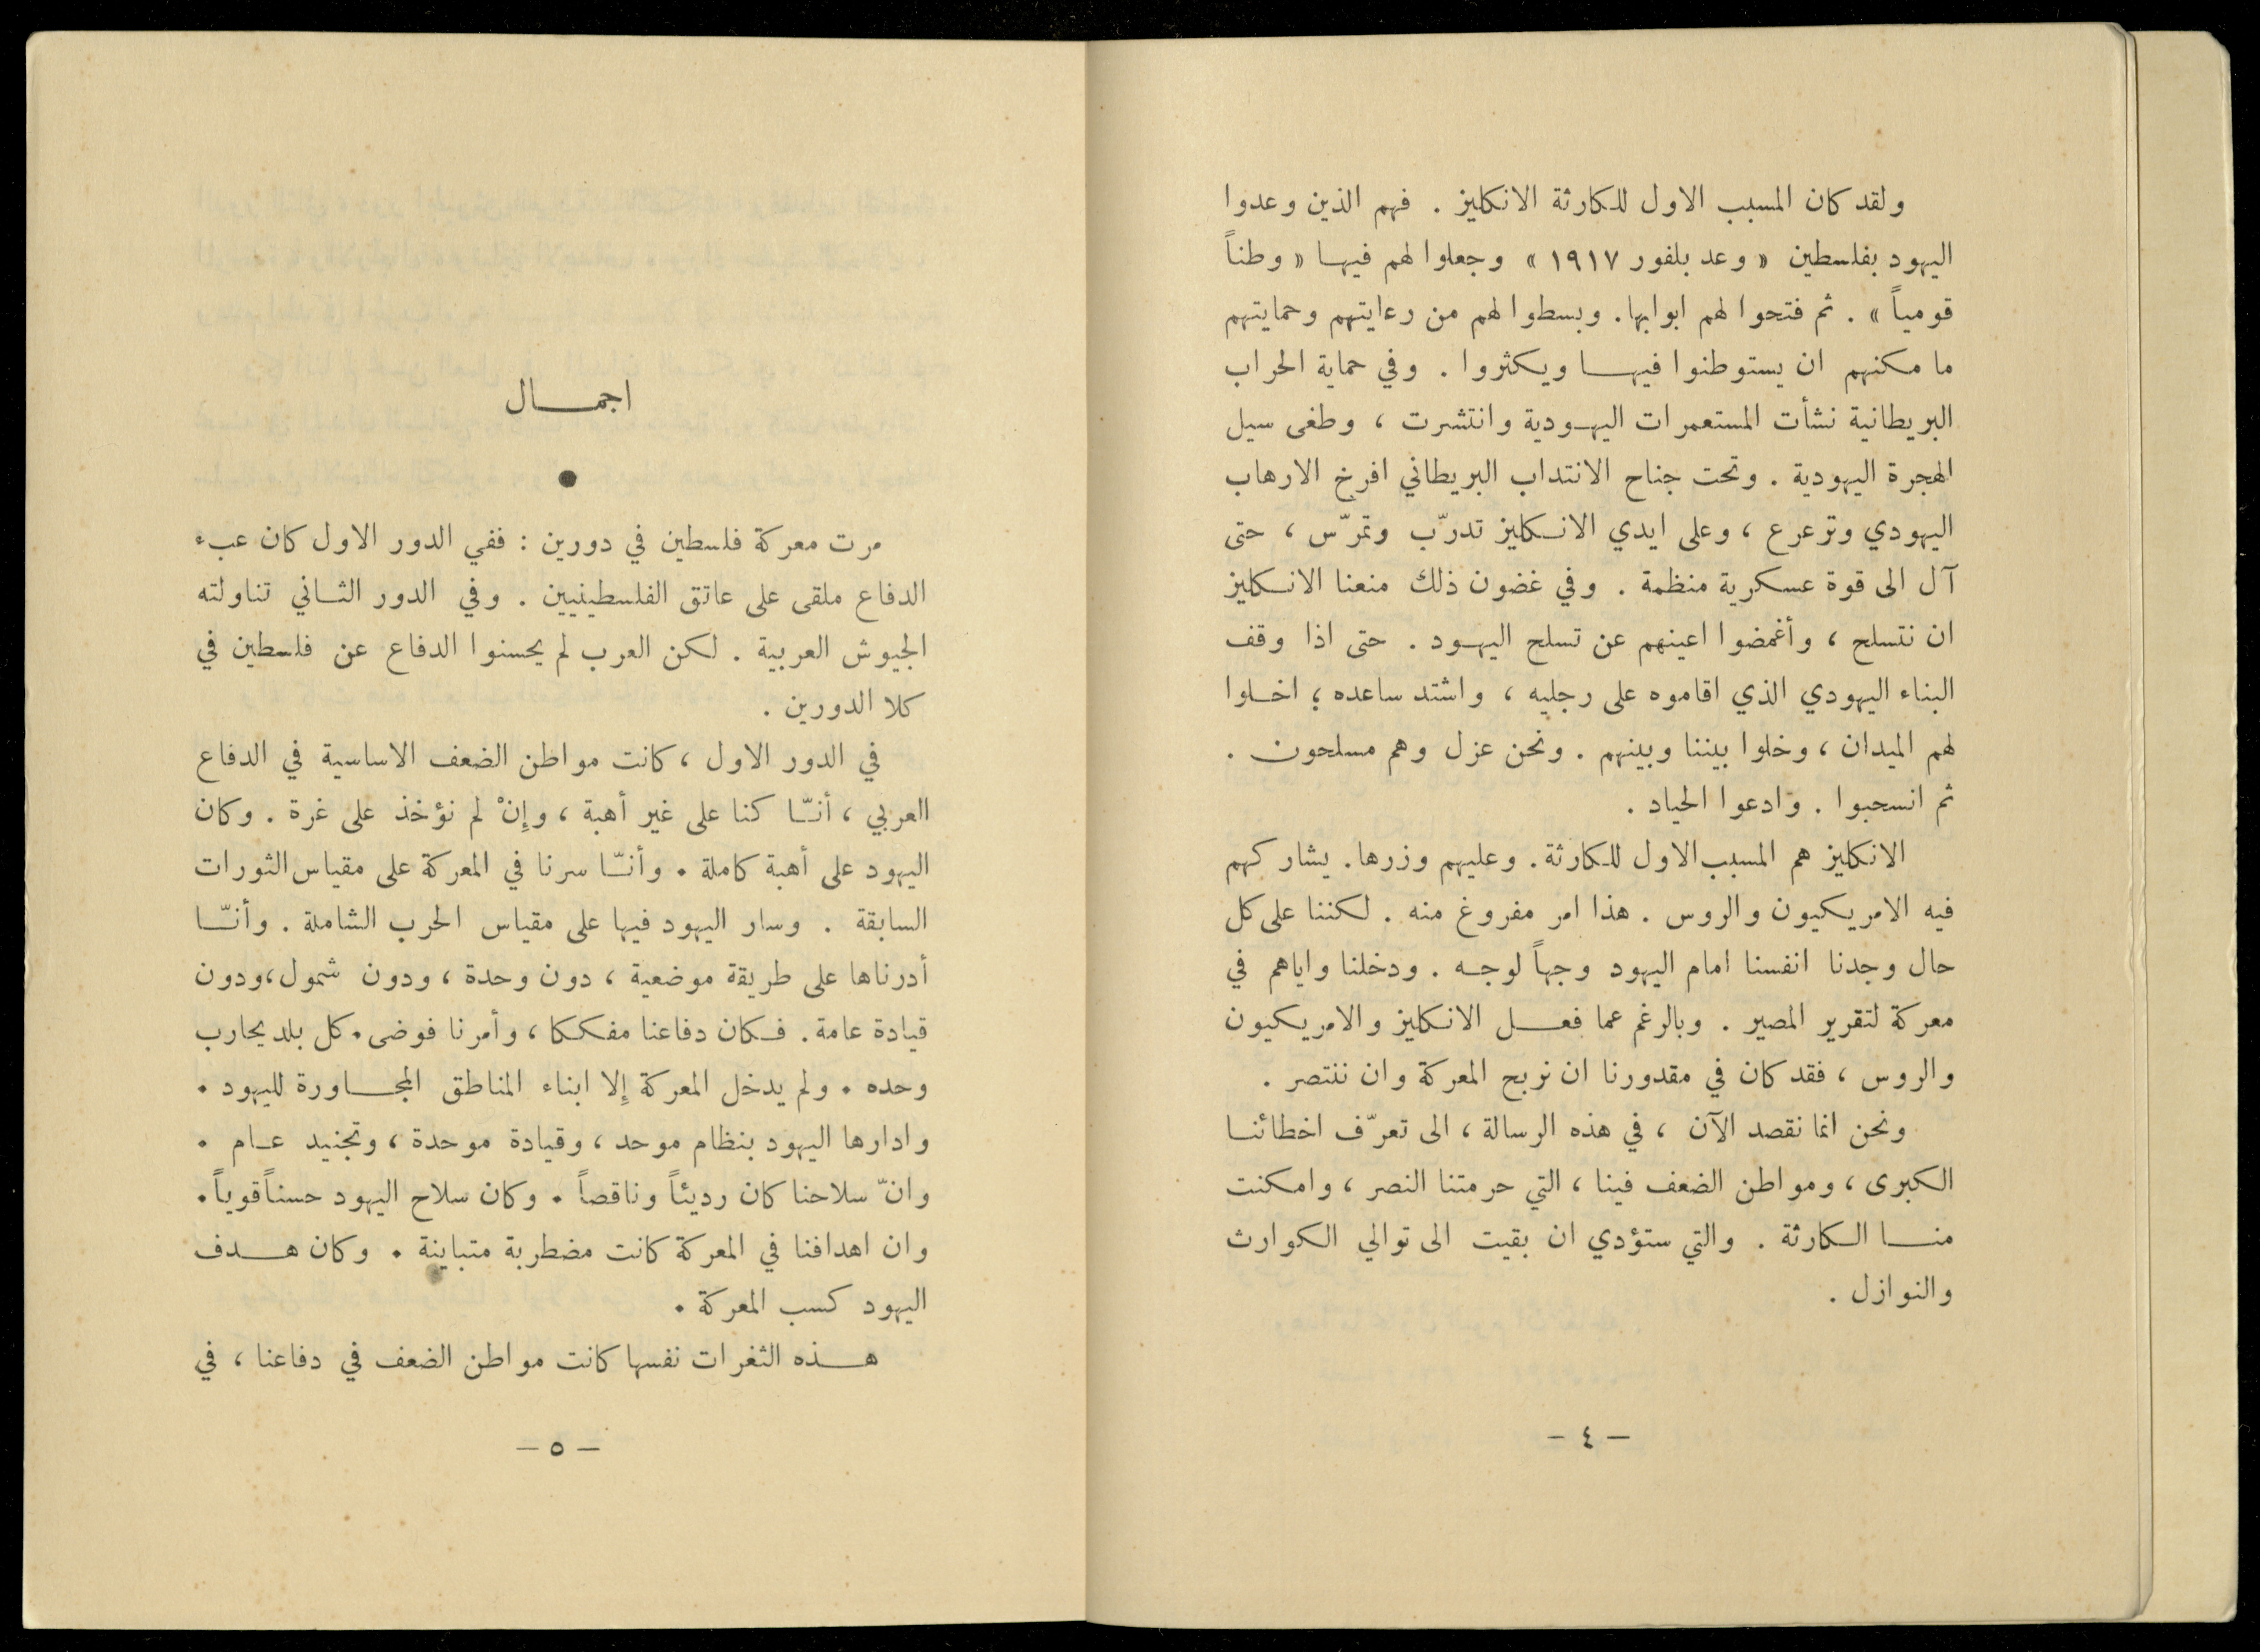 ولقد كان المسبب الاول للكارثة الانكليز . فهم الذين وعدوا
اليهود بفلسطين « وعد بلفور ١٩١٧ » وجعلوا لهم فيها « وطناً
قومياً » . ثم فتحوا لهم ابوابها . وبسطوا لهم من رعايتهم وحمايتهم
ما مكنهم ان يستوطنوا فيها ويكثروا . وفي حماية الحراب
البريطانية نشأت المستعمرات اليهودية وانتشرت ، وطغى سيل
الهجرة اليهودية . وتحت جناح الانتداب البريطاني افرخ الارهاب
اليهودي وترعرع ، وعلى ايدي الانكليز تدرّب وتمرّس ، حتى
آل الى قوة عسكرية منظمة . وفي غضون ذلك منعنا الانكليز
ان نتسلح ، وأغمضوا اعينهم عن تسلح اليهود . حتى اذا وقف
البناء اليهودي الذي اقاموه على رجليه ، واشتد ساعده ؛ اخلوا
لهم الميدان ، وخلوا بيننا وبينهم . ونحن عزل وهم مسلحون .
ثم انسحبوا . وادعوا الحياد .
الانكليز هم المسبب الاول للكارثة . وعليهم وزرها . يشاركهم
فيه الامريكيون والروس . هذا امر مفروغ منه . لكننا على كل
حال وجدنا انفسنا امام اليهود وجهاً لوجه . ودخلنا واياهم في
معركة لتقرير المصير . وبالرغم عما فعل الانكليز والامريكيون
والروس ، فقد كان في مقدورنا ان نربح المعركة وان ننتصر .
ونحن انما نقصد الآن ، في هذه الرسالة ، الى تعرّف اخطائنا
الكبرى ، ومواطن الضعف فينا ، التي حرمتنا النصر ، وامكنت
منا الكارثة . والتي ستؤدي ان بقيت الى توالي الكوارث
والنوازل .
– ٤ –
اجمال
مرت معركة فلسطين في دورين : ففي الدور الاول كان عبء
الدفاع ملقى على عاتق الفلسطينيين . وفي الدور الثاني تناولته
الجيوش العربية . لكن العرب لم يحسنوا الدفاع عن فلسطين في
كلا الدورين .
في الدور الاول ، كانت مواطن الضعف الاساسية في الدفاع
العربي ، أنّا كنا على غير أهبة ، وإنْ لم نؤخذ على غرة . وكان
اليهود على أهبة كاملة . وأنّا سرنا في المعركة على مقياس الثورات
السابقة . وسار اليهود فيها على مقياس الحرب الشاملة . وأنّا
أدرناها على طريقة موضعية ، دون وحدة ، ودون شمول ، ودون
قيادة عامة . فكان دفاعنا مفككا ، وأمرنا فوضى . كل بلد يحارب
وحده . ولم يدخل المعركة إلا ابناء المناطق المجاورة لليهود .
وادارها اليهود بنظام موحد ، وقيادة موحدة ، وتجنيد عام .
وانّ سلاحنا كان رديئاً وناقصاً . وكان سلاح اليهود حسناً قوياً .
وان اهدافنا في المعركة كانت مضطربة متباينة . وكان هدف
اليهود كسب المعركة .
هذه الثغرات نفسها كانت مواطن الضعف في دفاعنا ، في
– ٥ –